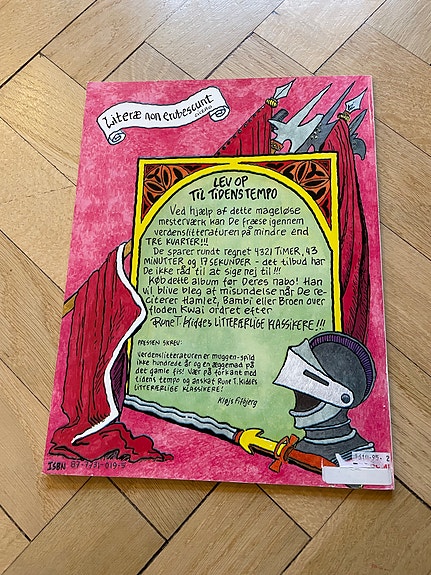 Literæ non erubescunt
CICERO
LEV OP
TIL TIDENS TEMPO
Ved hjælp af dette mageløse
mesterværk kan De fræse igennem
verdenslitteraturen på mindre end
TRE KVARTER!!!
De sparer rundt regnet 4321 TIMER, 43
MINUTTER og 17 SEKUNDER - det tilbud har
De ikke råd til at sige nej til!!!
Køb dette album før Deres nabo! Han
vil blive bleg af misundelse når De re-
citerer Hamlet, Bambi eller Broen over
floden Kwai ordret efter
Rune T. Kiddes LITTERÆRLIGE KLASSIKERE!!!
PRESSEN SKREV:
Verdenslitteraturen er muggen-spild
ikke hundrede år og en æggemad på
det gamle fis! Vær på forkant med
tidens tempo og anskaf Rune T. Kiddes
LITTERÆRLIGE KLASSIKERE!
Kløjs Fifbjerg
ISBN 87-7731-019-5